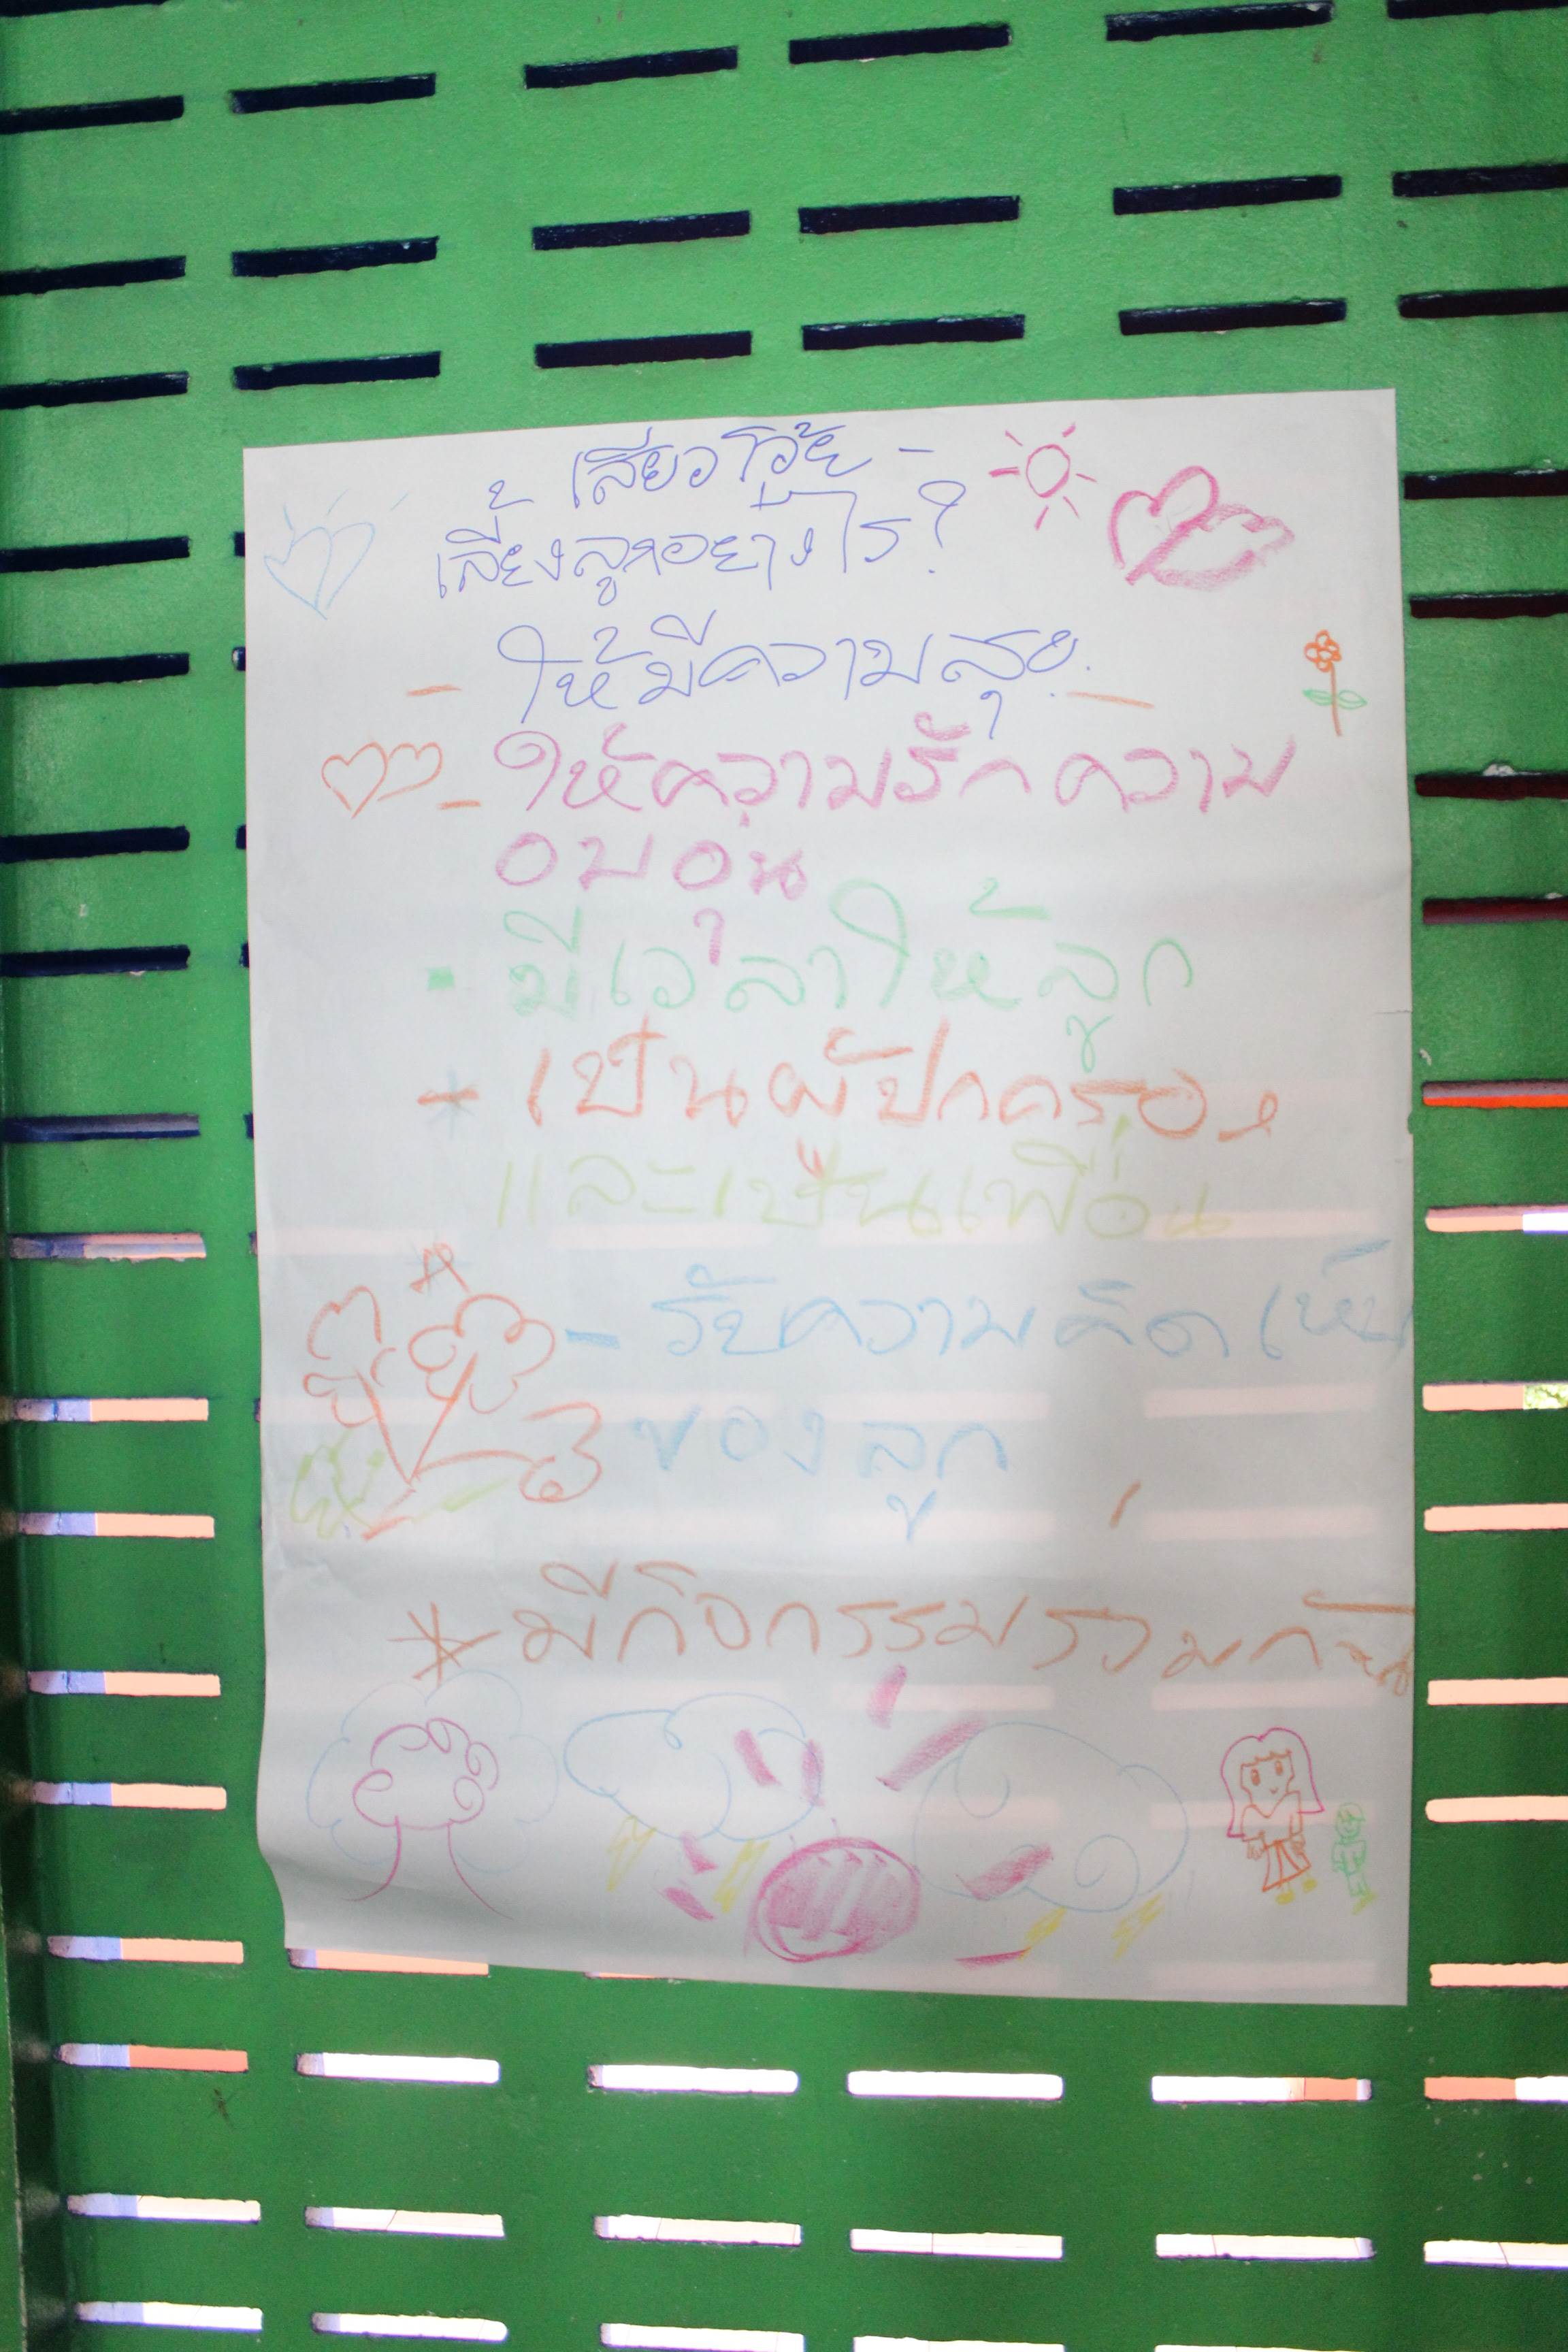 เสียวโว้ย -
เลี้ยงลูกอย่างไร?
- ให้มีความสุข. -
- ให้ความรักความ
อบอุ่น
- มีเวลาให้ลูก
- เป็นผู้ปกครอง
และเป็นเพื่อน
- รับความคิดเห็น
ของลูก
* มีกิจกรรมร่วมกัน